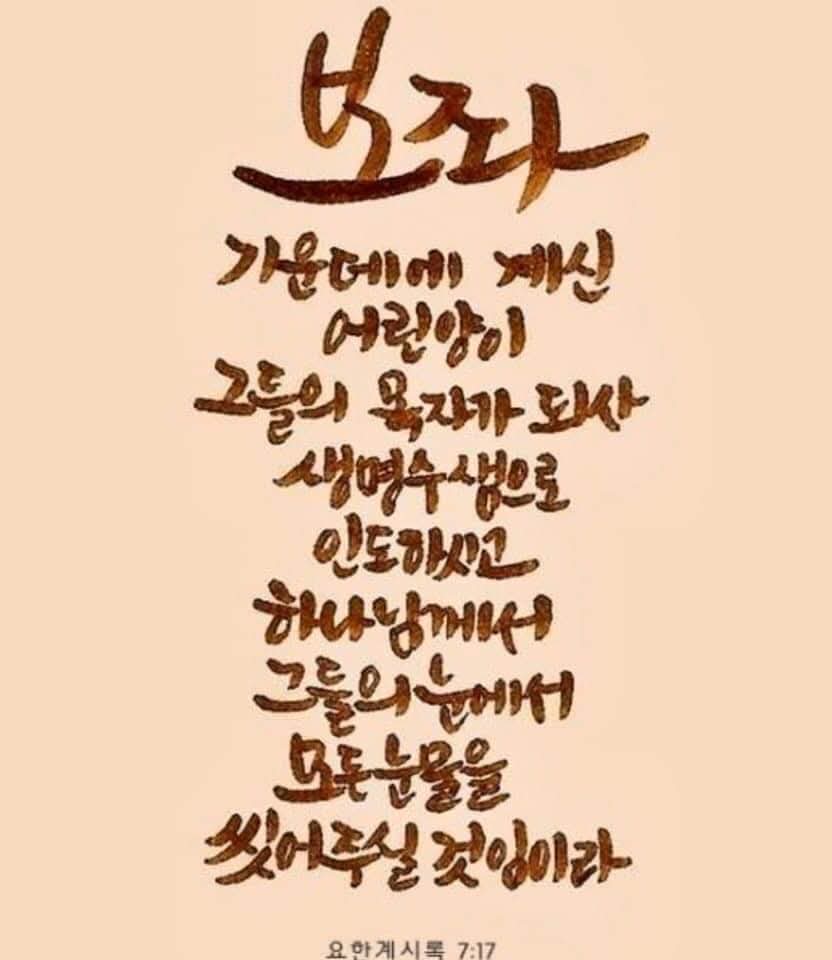 보좌
가운데에 계신
어린양이
그들의 목자가 되사
생명수샘으로
인도하시고
하나님께서
그들의 눈에서
모든 눈물을
씻어주실 것임이라
요한계시록 7:17